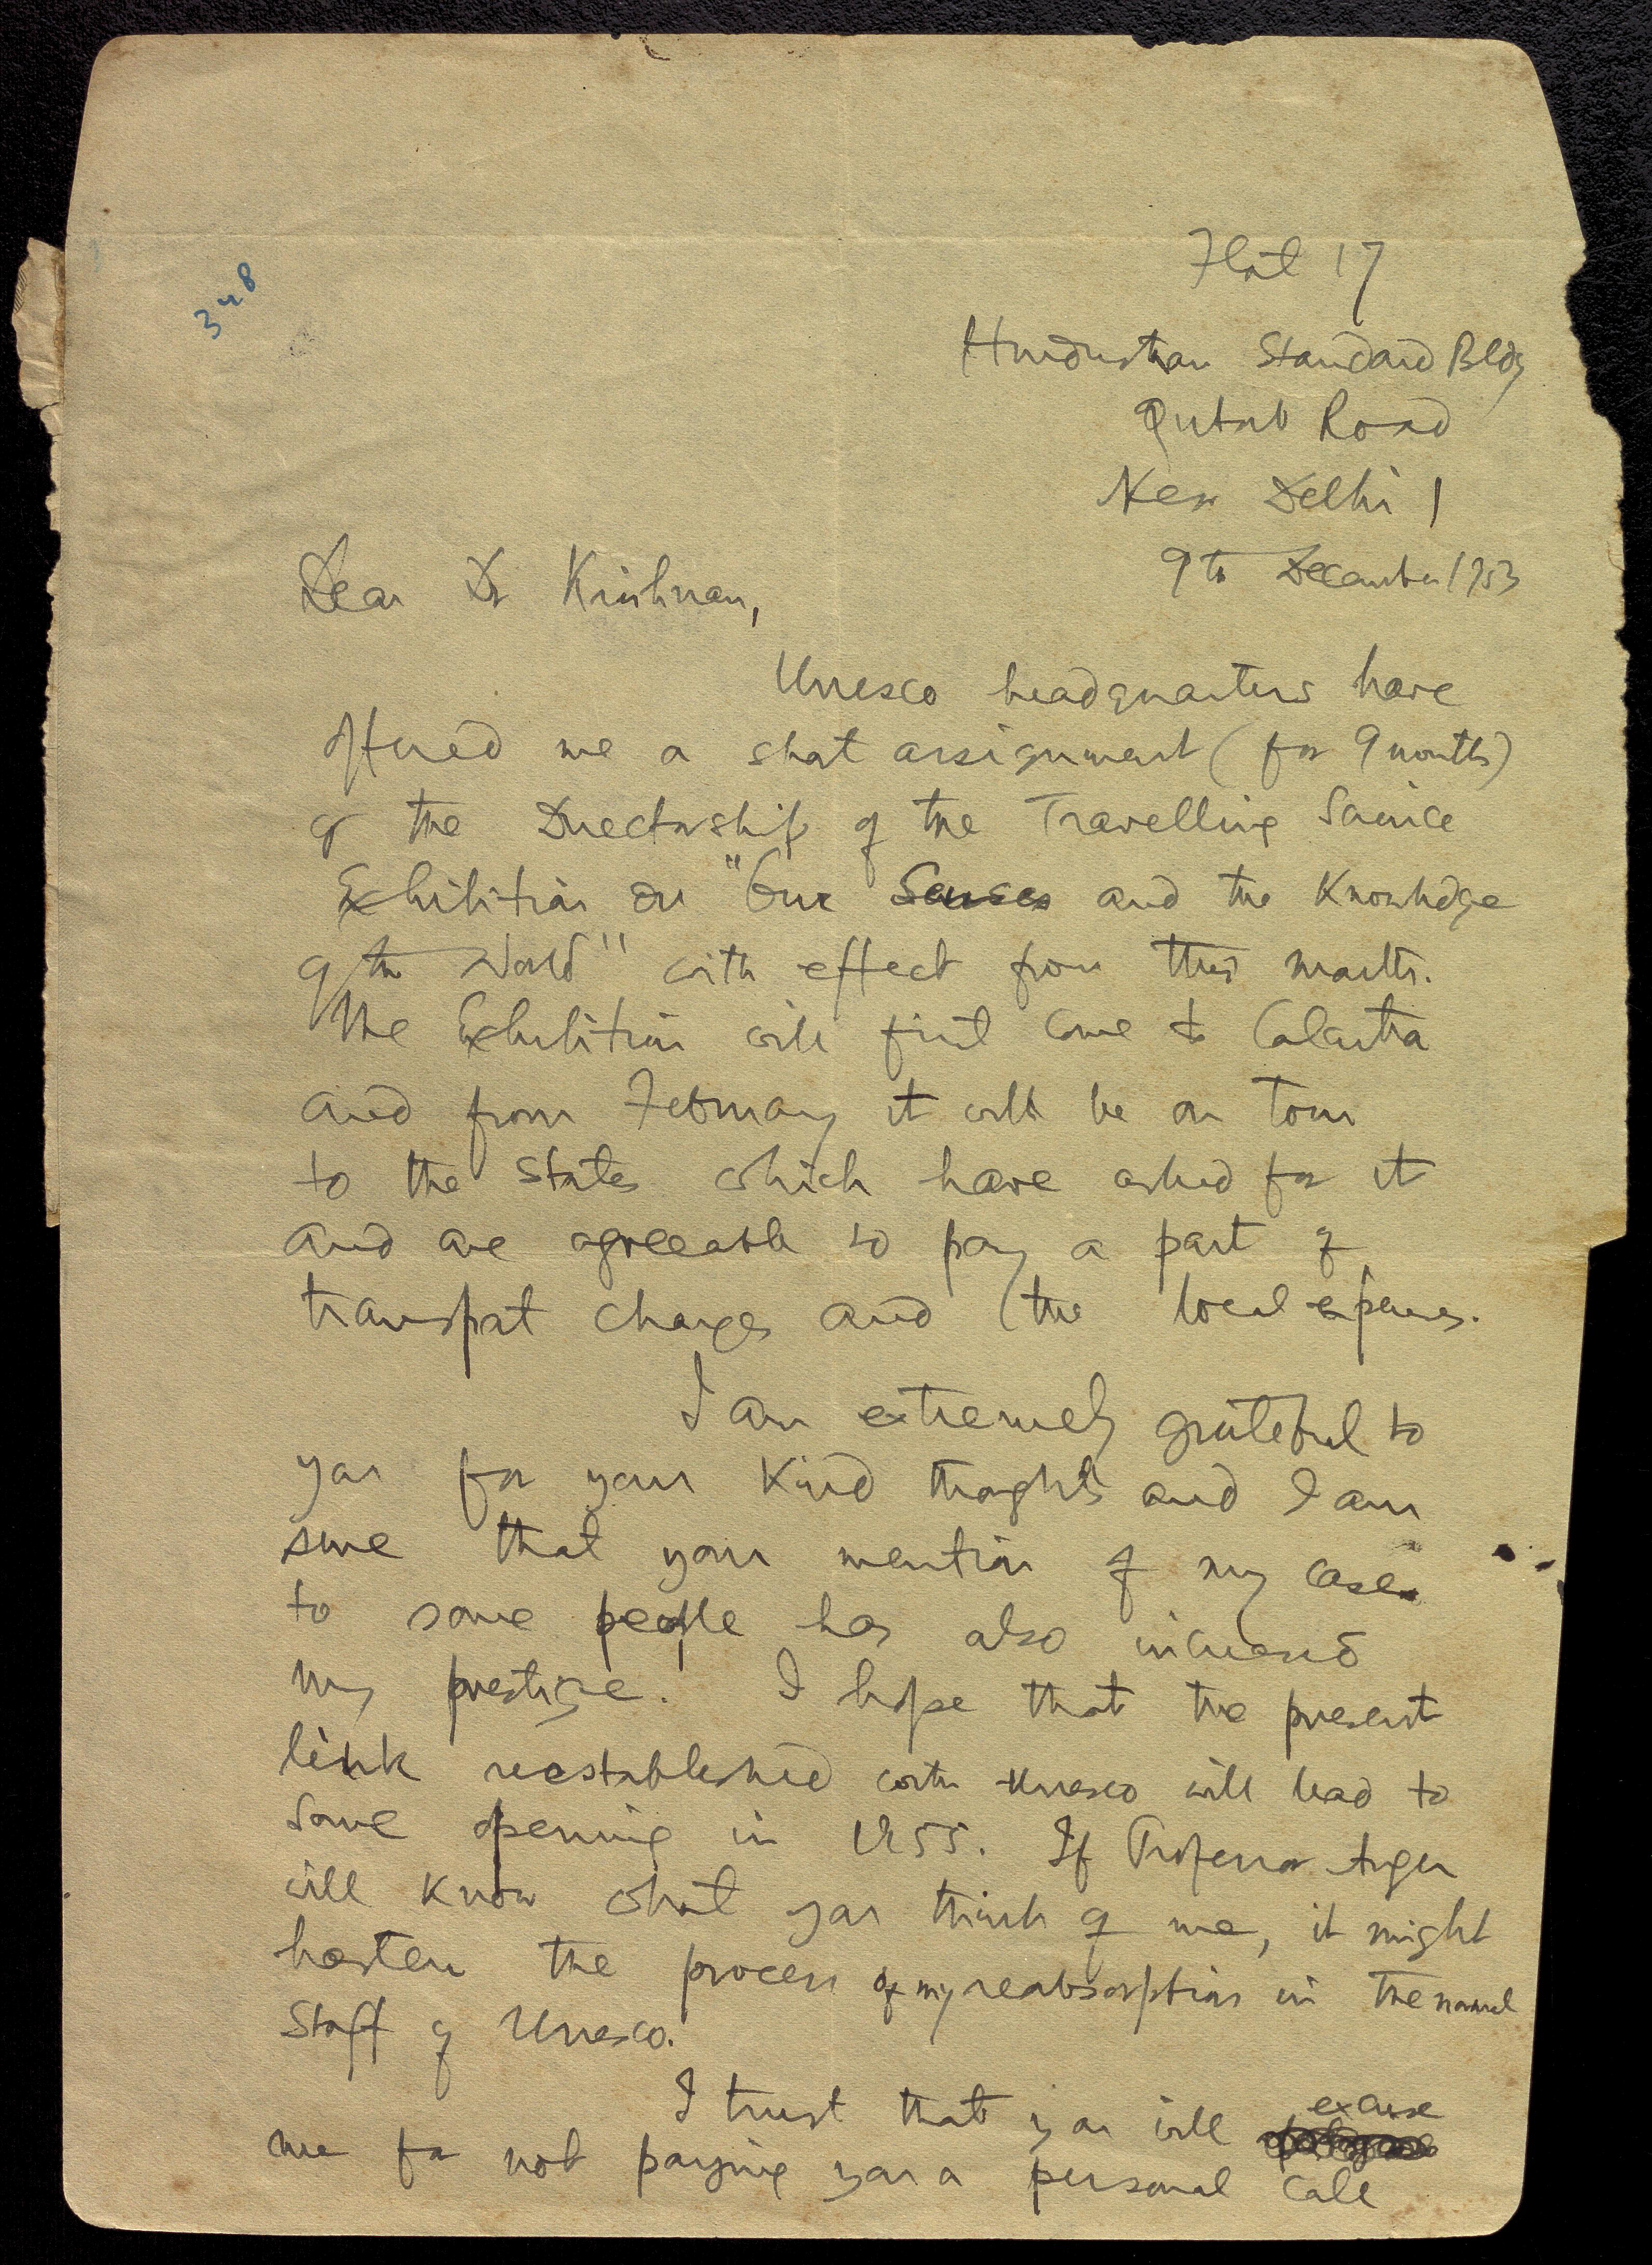 348
Flat 17
Hindusthan Standard Bldg
Qutab Road
New Delhi 1
9th December 1953
Dear Dr Krishnan,
Unesco headquarters have
offered me a short assignment (for 9 months)
of the Directorship of the Travelling Science
Exhibition on "Our Senses and the Knowledge
of the World" with effect from this month.
The Exhibition will first come to Calcutta
and from February it will be on tour
to the States which have asked for it
and are agreeable to pay a part of
transport charges and the local expenses.
I am extremely grateful to
you for your kind thoughts and I am
sure that your mention of my case
to some people has also increased
my prestige. I hope that the present
link reestablished with Unesco will lead to
some opening in 1955. If Professor Auger
will know what you think of me, it might
hasten the process of my reabsorption in the normal
Staff of Unesco.
I trust that you will excuse
me for not paying you a personal call